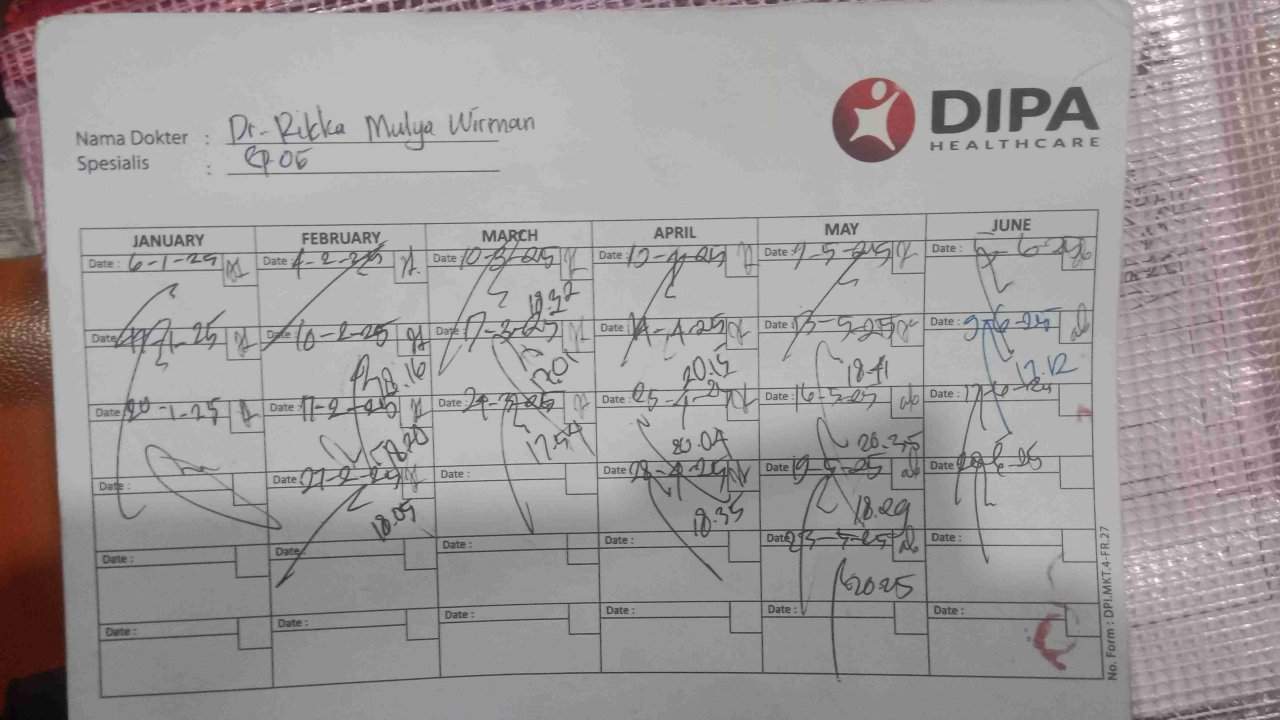 DIPA
HEALTHCARE
Nama Dokter : Dr. Rikka Mulya Wirman
Spesialis :
JANUARY FEBRUARY MARCH APRIL MAY JUNE
Date : 6-1-25 Date : 4-2-25 Date : 10-3-25 Date : 12-4-25 Date : 9-5-25 Date :
18.32
Date : Date : 10-2-25 Date : 17-3-25 Date : 14-4-25 Date : 13-5-25 Date : 9-6-25
18.16 20.15 18.41 17.12
Date : 20-1-25 Date : 17-2-25 Date : 24-3-25 Date : Date : 16-5-25 Date : 17-6-25
18.20 17.54 20.04
Date : Date : 27-2-25 Date : Date : 28-4-25 Date : 19-5-25 Date :
18.05 18.35 18.29
Date : Date : Date : Date : Date : 23-5-25 Date :
20.25
Date : Date : Date : Date : Date : Date :
No. Form : DPI.MKT.4-FR.27